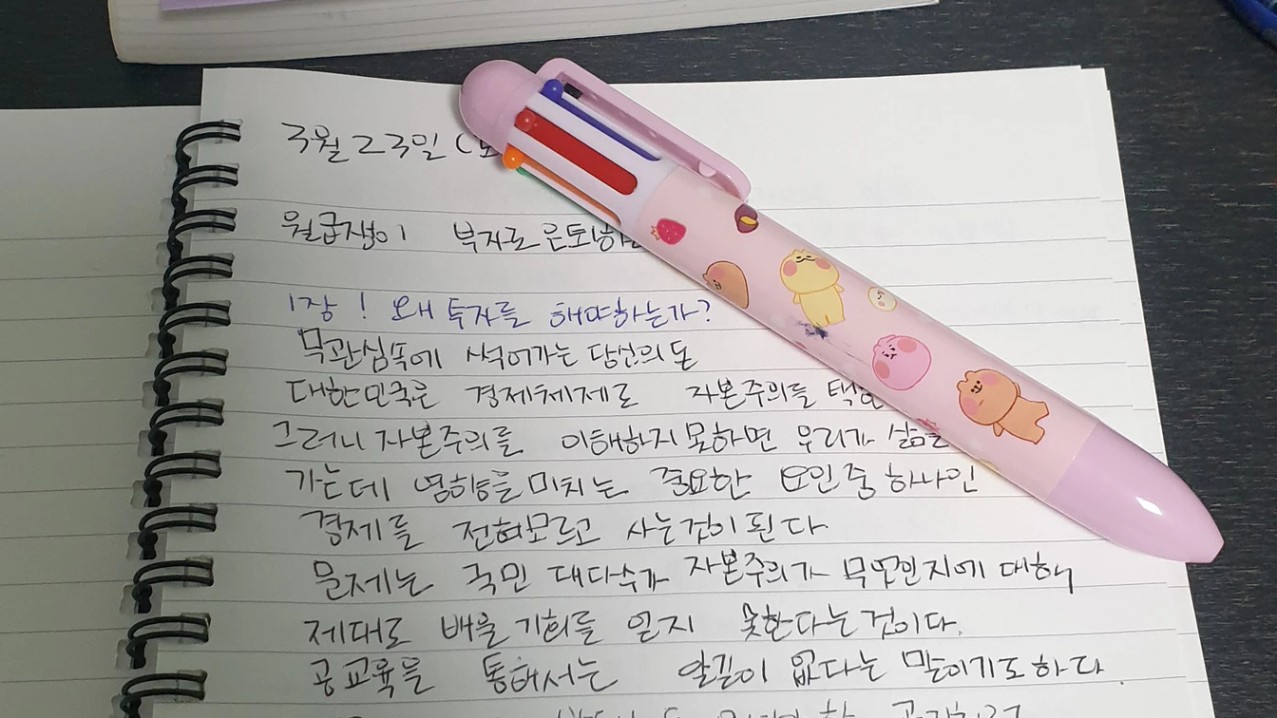 3월 23일 (
월급쟁이 부자로 은퇴하
1장! 왜 투자를 해야하는가?
무관심속에 썩어가는 당신의 돈
대한민국은 경제체제로 자본주의를 택
그러니 자본주의를 이해하지 못하면 우리가 삶을
가는데 영향을 미치는 중요한 요인 중 하나인
경제를 전혀모르고 사는것이 된다
문제는 국민 대다수가 자본주의가 무엇인지에 대해
제대로 배울 기회를 얻지 못한다는 것이다.
공교육을 통해서는 알길이 없다는 말이기도 하다.